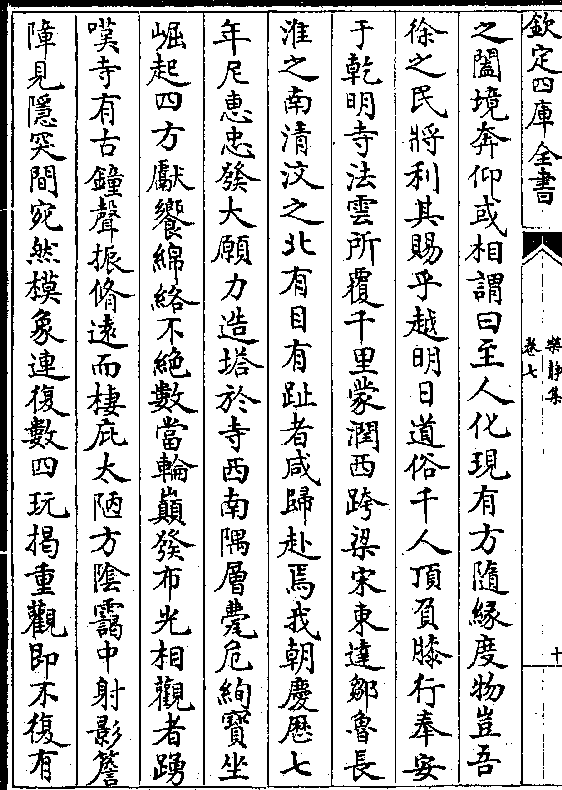 欽定四庫全書
樂靜集
卷七
十
之闔境奔仰或相謂曰至人化現有方隨緣度物豈吾
徐之民將利其賜乎越明日道俗千人頂負膝行奉安
于乾明寺法雲所覆千里蒙潤西跨梁宋東達鄒魯長
淮之南清汶之北有目有趾者咸歸赴焉我朝慶歷七
年尼惠忠發大願力造塔於寺西南隅層甍危絢寳坐
崛起四方獻饗綿絡不絶數當輪巔發布光相觀者踴
嘆寺有古鐘聲振脩遠而棲庇太陋方陰靄中射影簷
障見隱突間宛然模象連復數四玩揭重觀即不復有